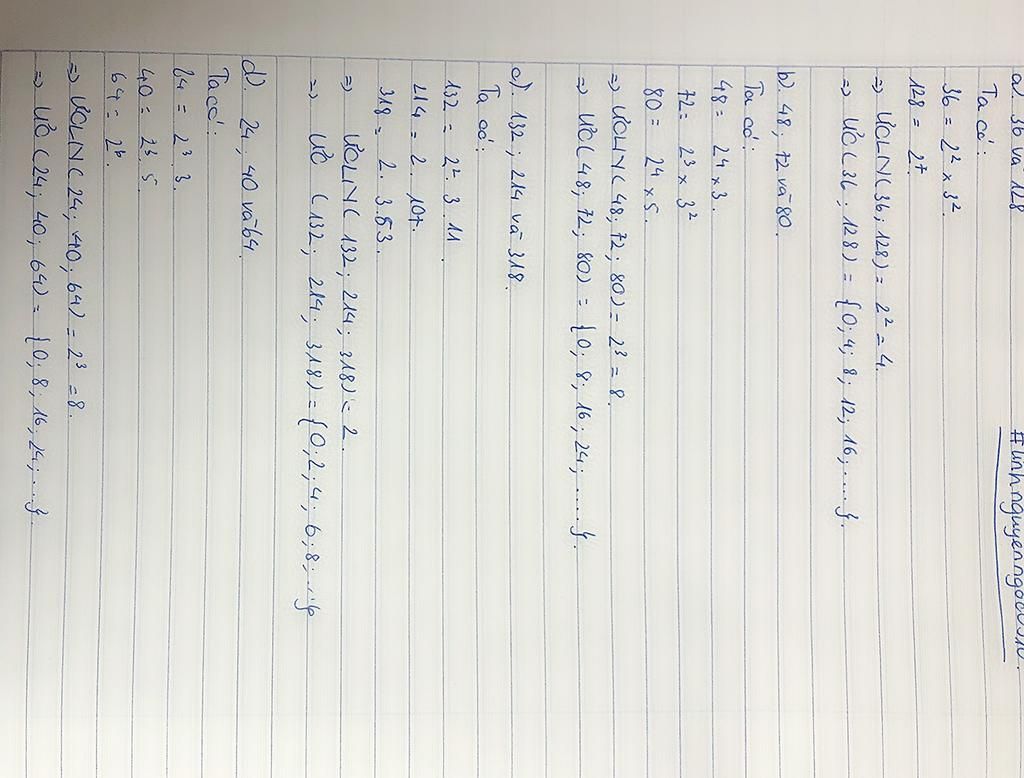 a). 36 và 128
#linhnguyenngoc0310.
Ta có:
36 = 2² × 3²
128 = 2⁷.
=> ƯCLN(36; 128) = 2² = 4.
=> ƯC(36; 128) = {0; 4; 8; 12; 16; ....}.
b). 48, 72 và 80.
Ta có:
48 = 2⁴ × 3.
72 = 2³ × 3²
80 = 2⁴ × 5.
=> ƯCLN(48, 72; 80) = 2³ = 8.
=> ƯC(48, 72; 80) = {0; 8; 16; 24; .....}.
c). 132; 214 và 318.
Ta có:
132 = 2². 3. 11.
214 = 2. 107.
318 = 2. 3. 53.
=> ƯCLN(132; 214; 318) = 2.
=> ƯC (132; 214; 318) = {0; 2; 4; 6; 8; ...}
d). 24; 40 và 64.
Ta có:
24 = 2³. 3.
40 = 2³. 5.
64 = 2⁶.
=> ƯCLN(24; 40; 64) = 2³ = 8.
=> ƯC (24; 40; 64) = {0; 8; 16; 24; ...}.